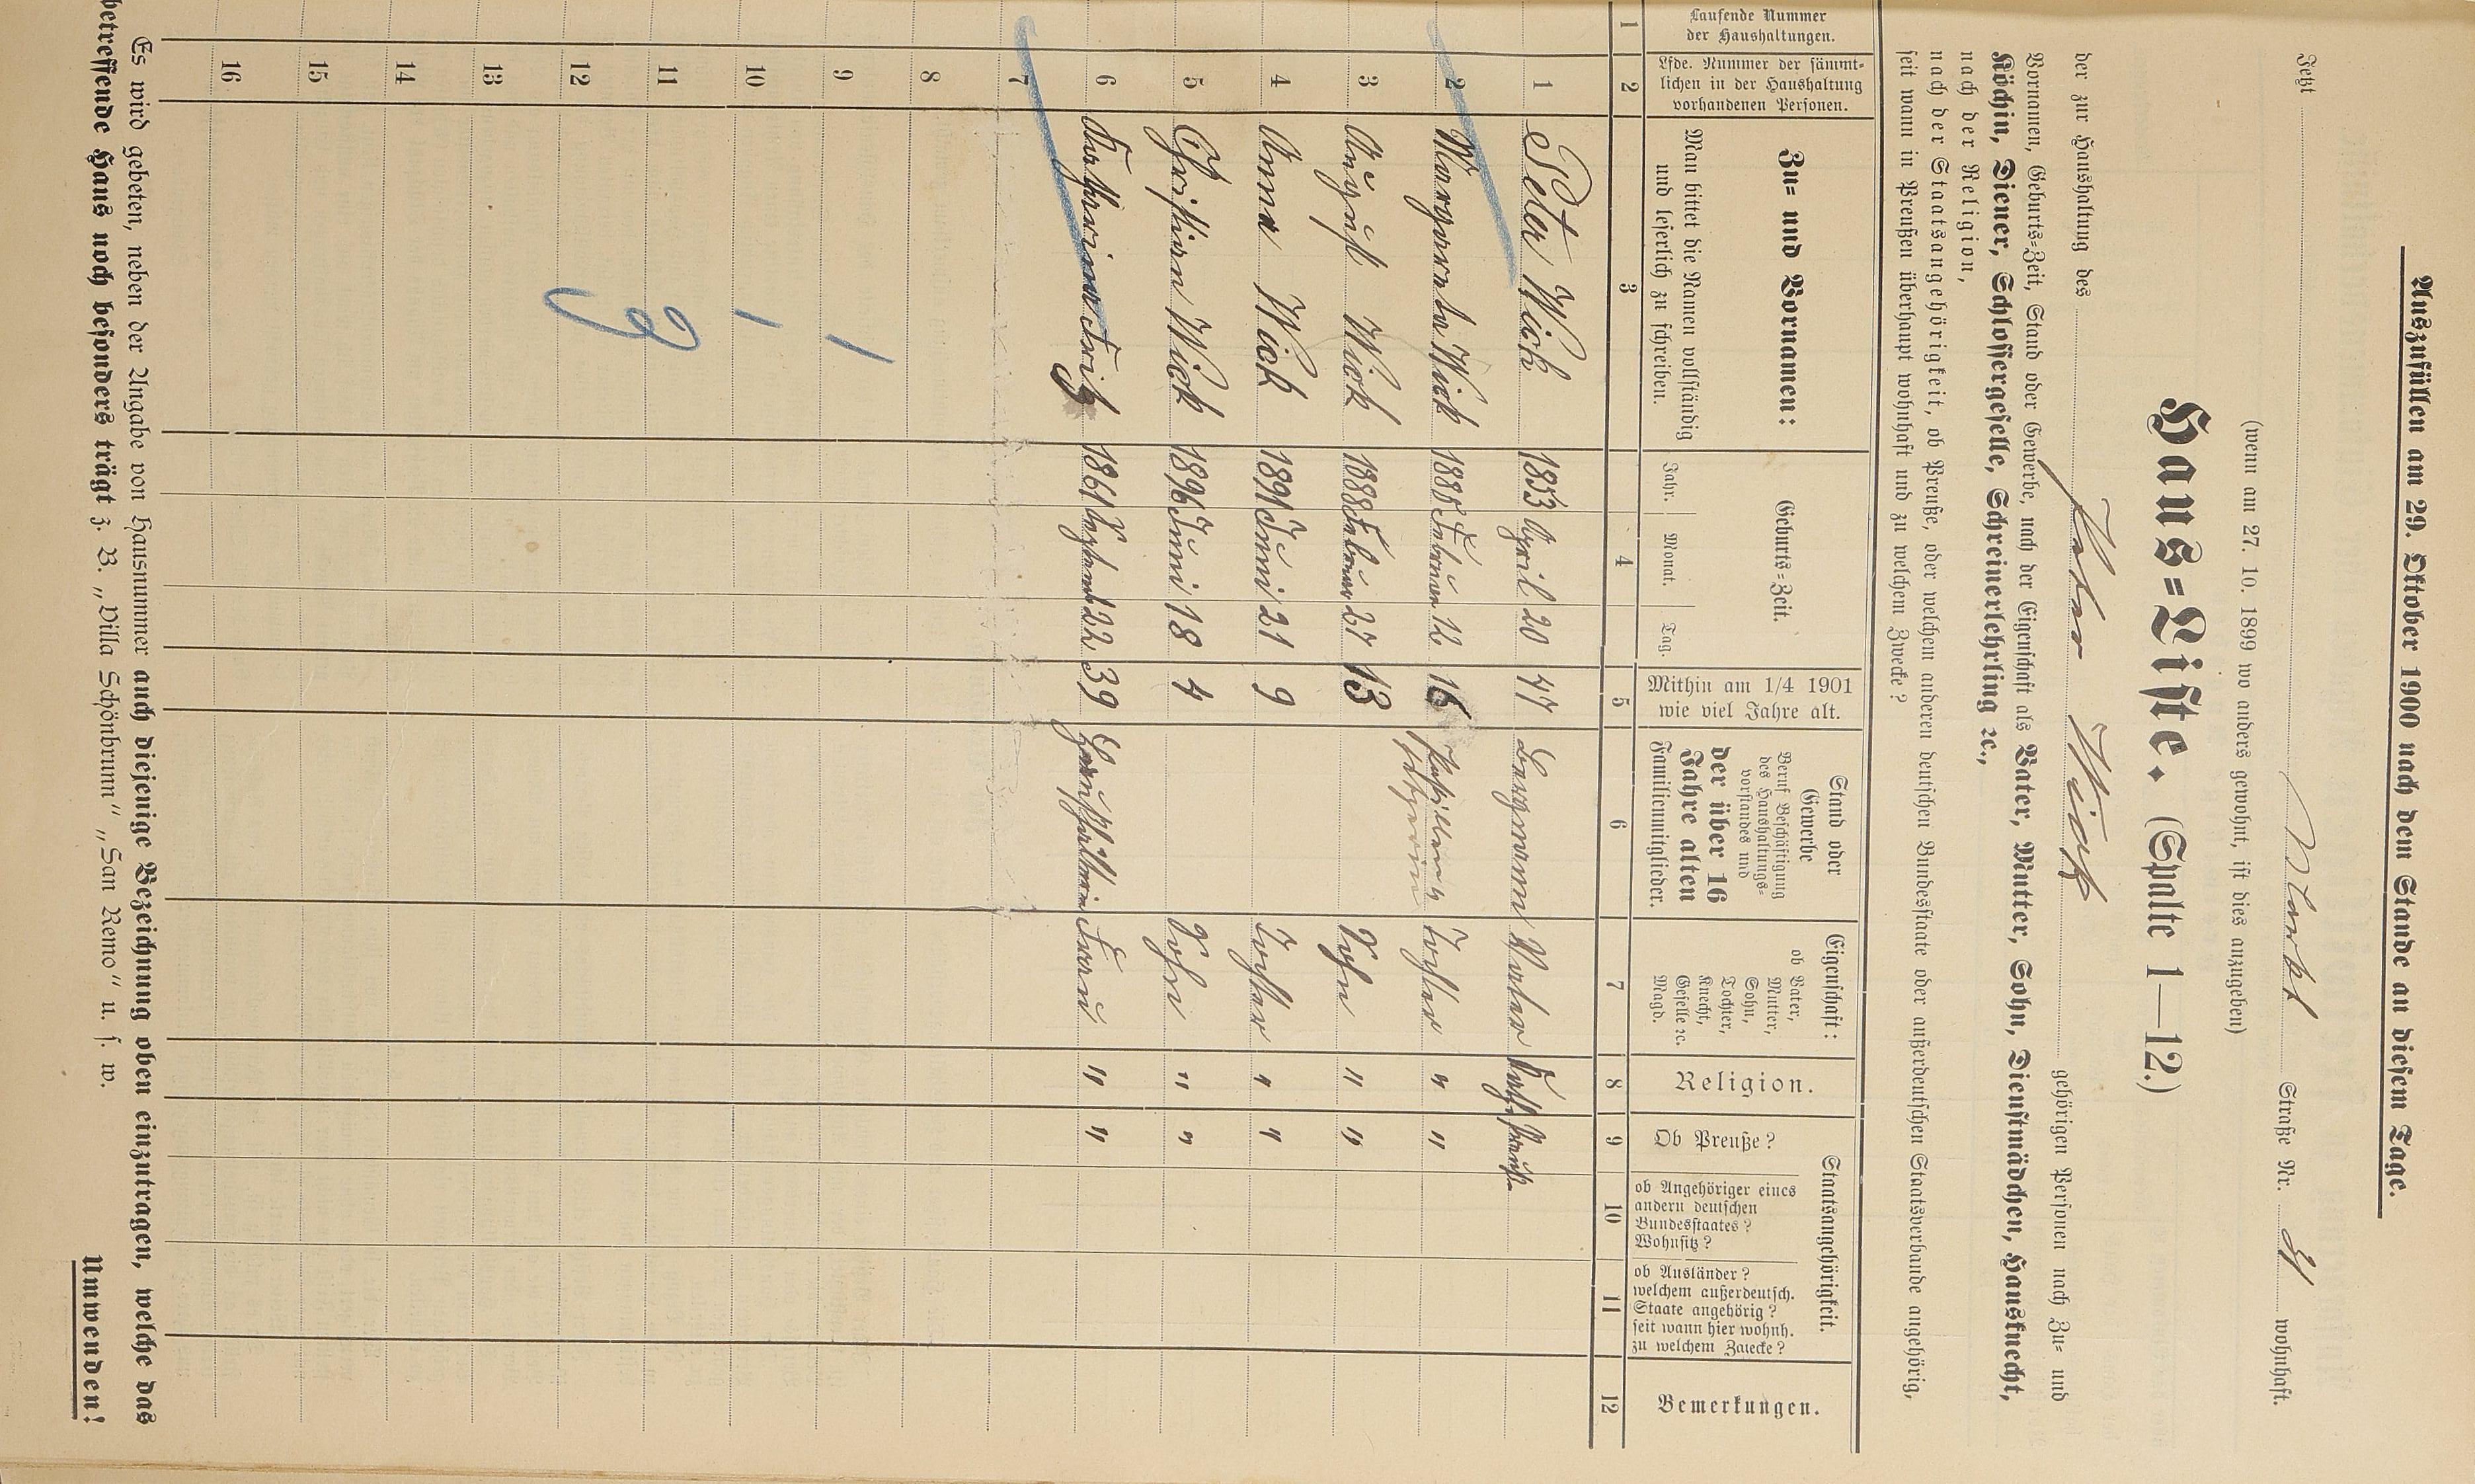 Auszufüllen am 29. Oktober 1900 nach dem Stande an diesem Tage.
Jetzt Markt Straße Nr. wohnhaft.
(wenn am 27. 10. 1899 wo anders gewohnt, ist dies anzugeben)
Haus=Liste. (Spalte 1—12.)
der zur Haushaltung des Peter Wick gehörigen Personen nach Zu= und
Vornamen, Geburts=Zeit, Stand oder Gewerbe, nach der Eigenschaft als Vater, Mutter, Sohn, Dienstmädchen, Hausknecht,
Köchin, Diener, Schlossergeselle, Schreinerlehrling ꝛc.,
nach der Religion,
nach der Staatsangehörigkeit, ob Preuße, oder welchem anderen deutschen Bundesstaate oder außerdeutschen Staatsverbande angehörig,
seit wann in Preußen überhaupt wohnhaft und zu welchem Zwecke?
Laufende Nummer
der Haushaltungen.
Lfde. Nummer der sämmt=
lichen in der Haushaltung
vorhandenen Personen.
Zu= und Vornamen:
Man bittet die Namen vollständig
und leserlich zu schreiben.
Geburts=Zeit.
Jahr. Monat. Tag.
Mithin am 1/4 1901
wie viel Jahre alt.
Stand oder
Gewerbe
Beruf Beschäftigung
des Haushaltungs=
vorstandes und
der über 16
Jahre alten
Familienmitglieder.
Eigenschaft:
ob Vater,
Mutter,
Sohn,
Tochter,
Knecht,
Geselle ꝛc.
Magd.
Religion.
Staatsangehörigkeit.
Ob Preuße?
ob Angehöriger eines
andern deutschen
Bundesstaates?
Wohnsitz?
ob Ausländer?
welchem außerdeutsch.
Staate angehörig?
seit wann hier wohnh.
zu welchem Zwecke?
Bemerkungen.
1 2 3 4 5 6 7 8 9 10 11 12
1 Peter Wick 1853 April 20 47 Bergmann Vater kath. Preuße
2 Margaretha Wick 1885 Februar 12 16 Tochter " "
3 August Wick 1888 Februar 27 13 Sohn " "
4 Anna Wick 1891 Juni 21 9 Tochter " "
5 Christian Wick 1896 Juni 18 4 Sohn " "
6 Katharina Fritz 1861 September 22 39 Haushälterin Frau " "
7
8
9
10
11
12
13
14
15
16
Es wird gebeten, neben der Angabe von Hausnummer auch diejenige Bezeichnung oben einzutragen, welche das
betreffende Haus noch besonders trägt z. B. „Villa Schönbrunn“ „San Remo“ u. s. w.
Umwenden!